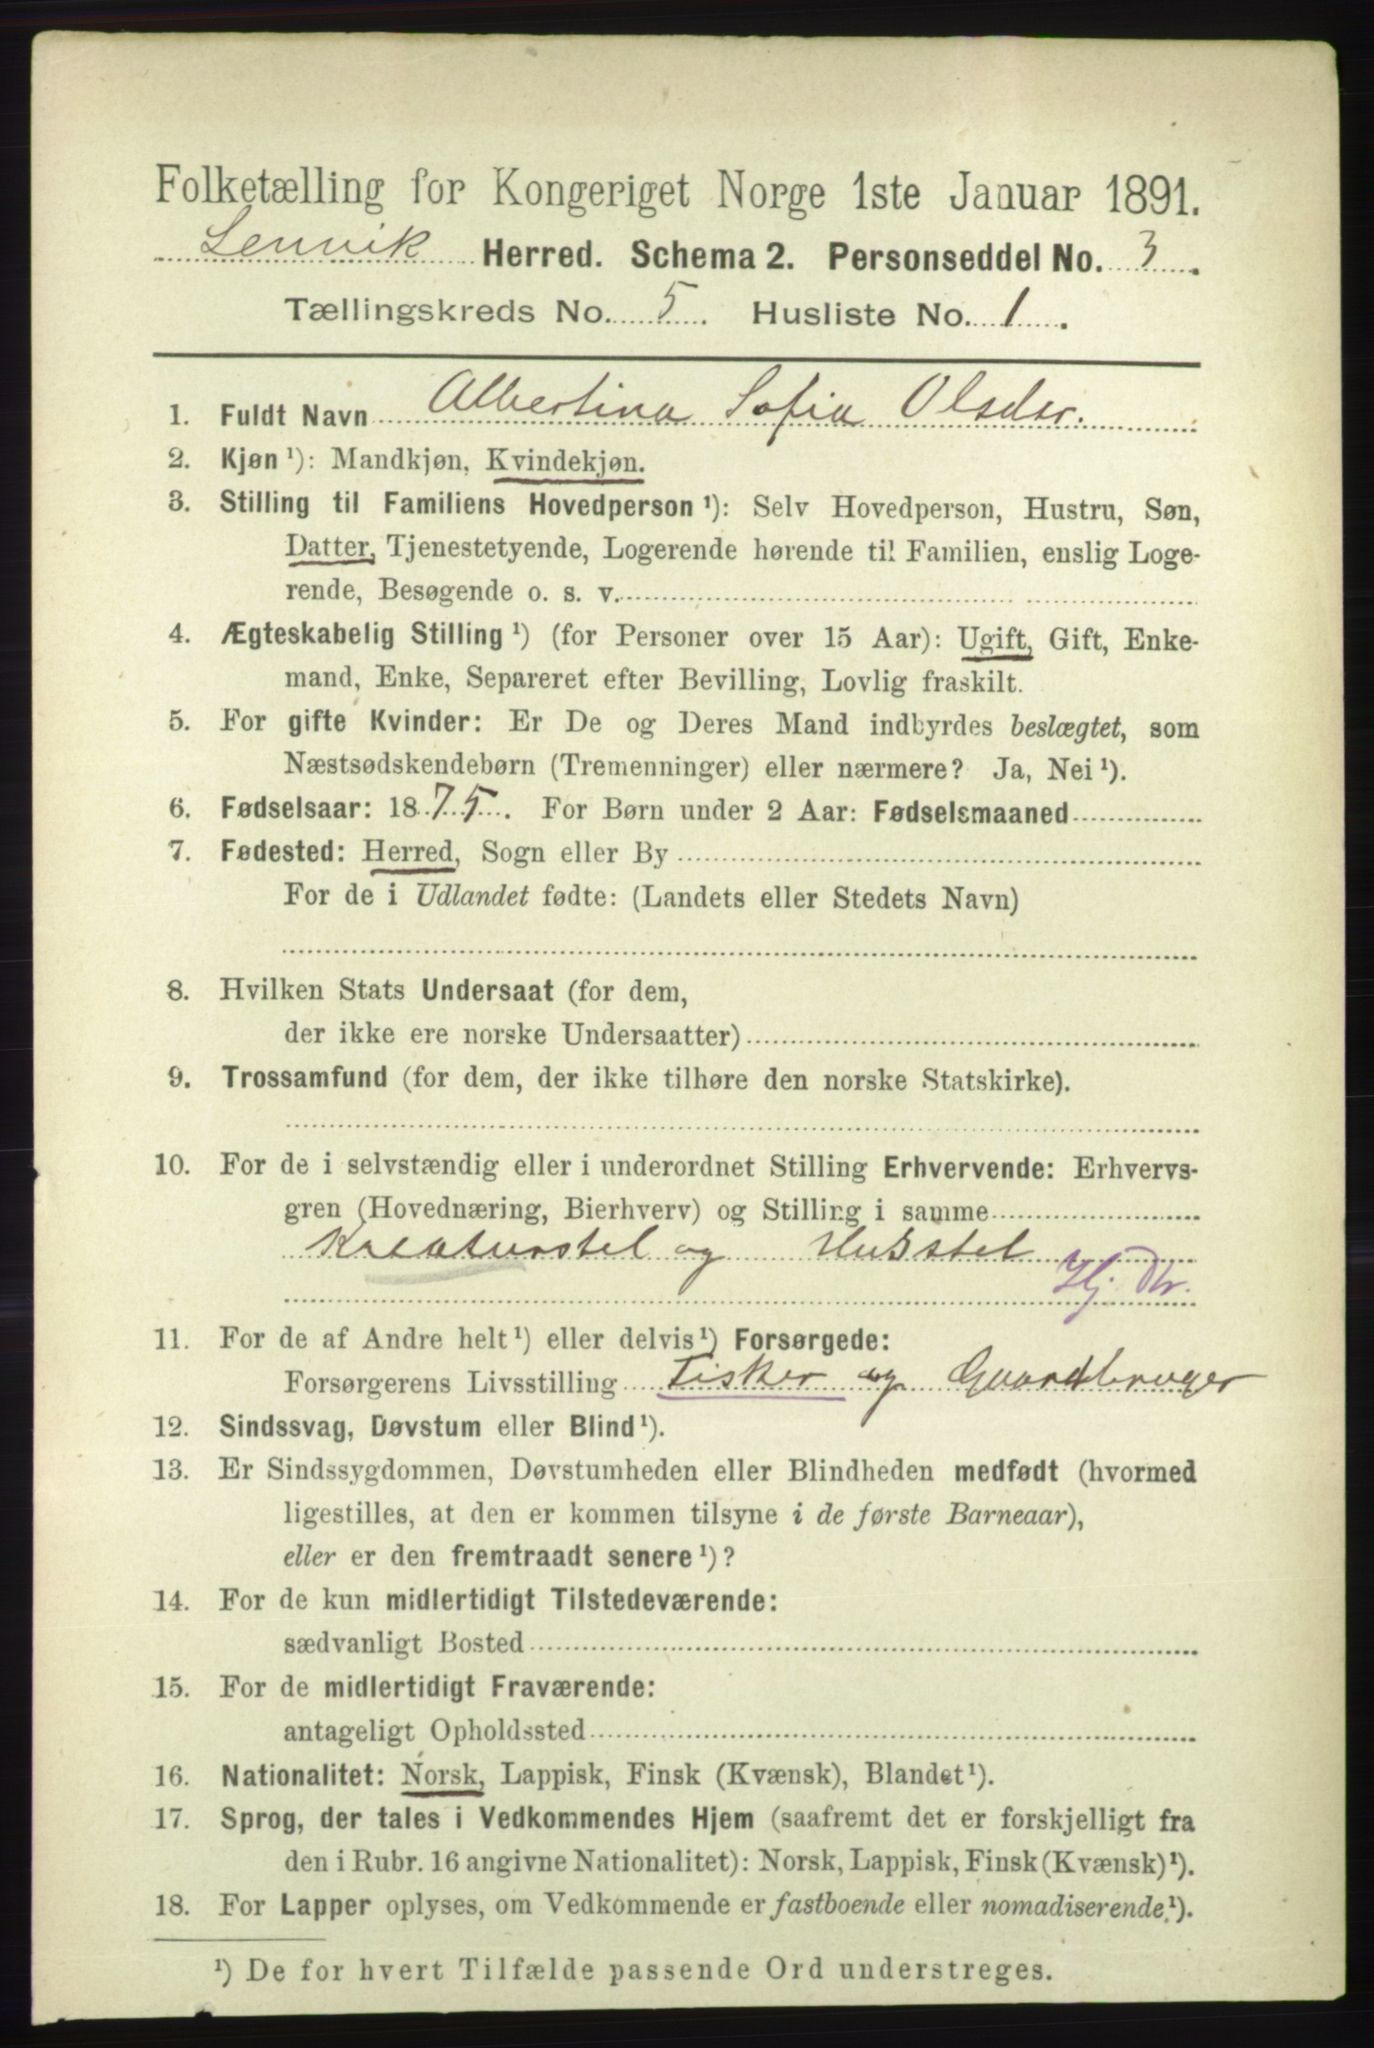 Folketælling for Kongeriget Norge 1ste Januar 1891.
Lenvik Herred. Schema 2. Personseddel No. 3.
Tællingskreds No. 5. Husliste No. 1.
1. Fuldt Navn Albertina Sofia Olsdtr.
2. Kjøn¹): Mandkjøn, Kvindekjøn.
3. Stilling til Familiens Hovedperson¹): Selv Hovedperson, Hustru, Søn,
Datter, Tjenestetyende, Logerende hørende til Familien, enslig Loge-
rende, Besøgende o. s. v.
4. Ægteskabelig Stilling¹) (for Personer over 15 Aar): Ugift, Gift, Enke-
mand, Enke, Separeret efter Bevilling, Lovlig fraskilt.
5. For gifte Kvinder: Er De og Deres Mand indbyrdes beslægtet, som
Næstsødskendebørn (Tremenninger) eller nærmere? Ja, Nei¹).
6. Fødselsaar: 1875. For Børn under 2 Aar: Fødselsmaaned
7. Fødested: Herred, Sogn eller By
For de i Udlandet fødte: (Landets eller Stedets Navn)
8. Hvilken Stats Undersaat (for dem,
der ikke ere norske Undersaatter)
9. Trossamfund (for dem, der ikke tilhøre den norske Statskirke).
10. For de i selvstændig eller i underordnet Stilling Erhvervende: Erhvervs-
gren (Hovednæring, Bierhverv) og Stilling i samme
Kreaturstel og Husstel
Hj. Dtr.
11. For de af Andre helt¹) eller delvis¹) Forsørgede:
Forsørgerens Livsstilling Fisker og Gaardbruger
12. Sindssvag, Døvstum eller Blind¹).
13. Er Sindssygdommen, Døvstumheden eller Blindheden medfødt (hvormed
ligestilles, at den er kommen tilsyne i de første Barneaar),
eller er den fremtraadt senere¹)?
14. For de kun midlertidigt Tilstedeværende:
sædvanligt Bosted
15. For de midlertidigt Fraværende:
antageligt Opholdssted
16. Nationalitet: Norsk, Lappisk, Finsk (Kvænsk), Blandet¹).
17. Sprog, der tales i Vedkommendes Hjem (saafremt det er forskjelligt fra
den i Rubr. 16 angivne Nationalitet): Norsk, Lappisk, Finsk (Kvænsk)¹).
18. For Lapper oplyses, om Vedkommende er fastboende eller nomadiserende¹).
¹) De for hvert Tilfælde passende Ord understreges.